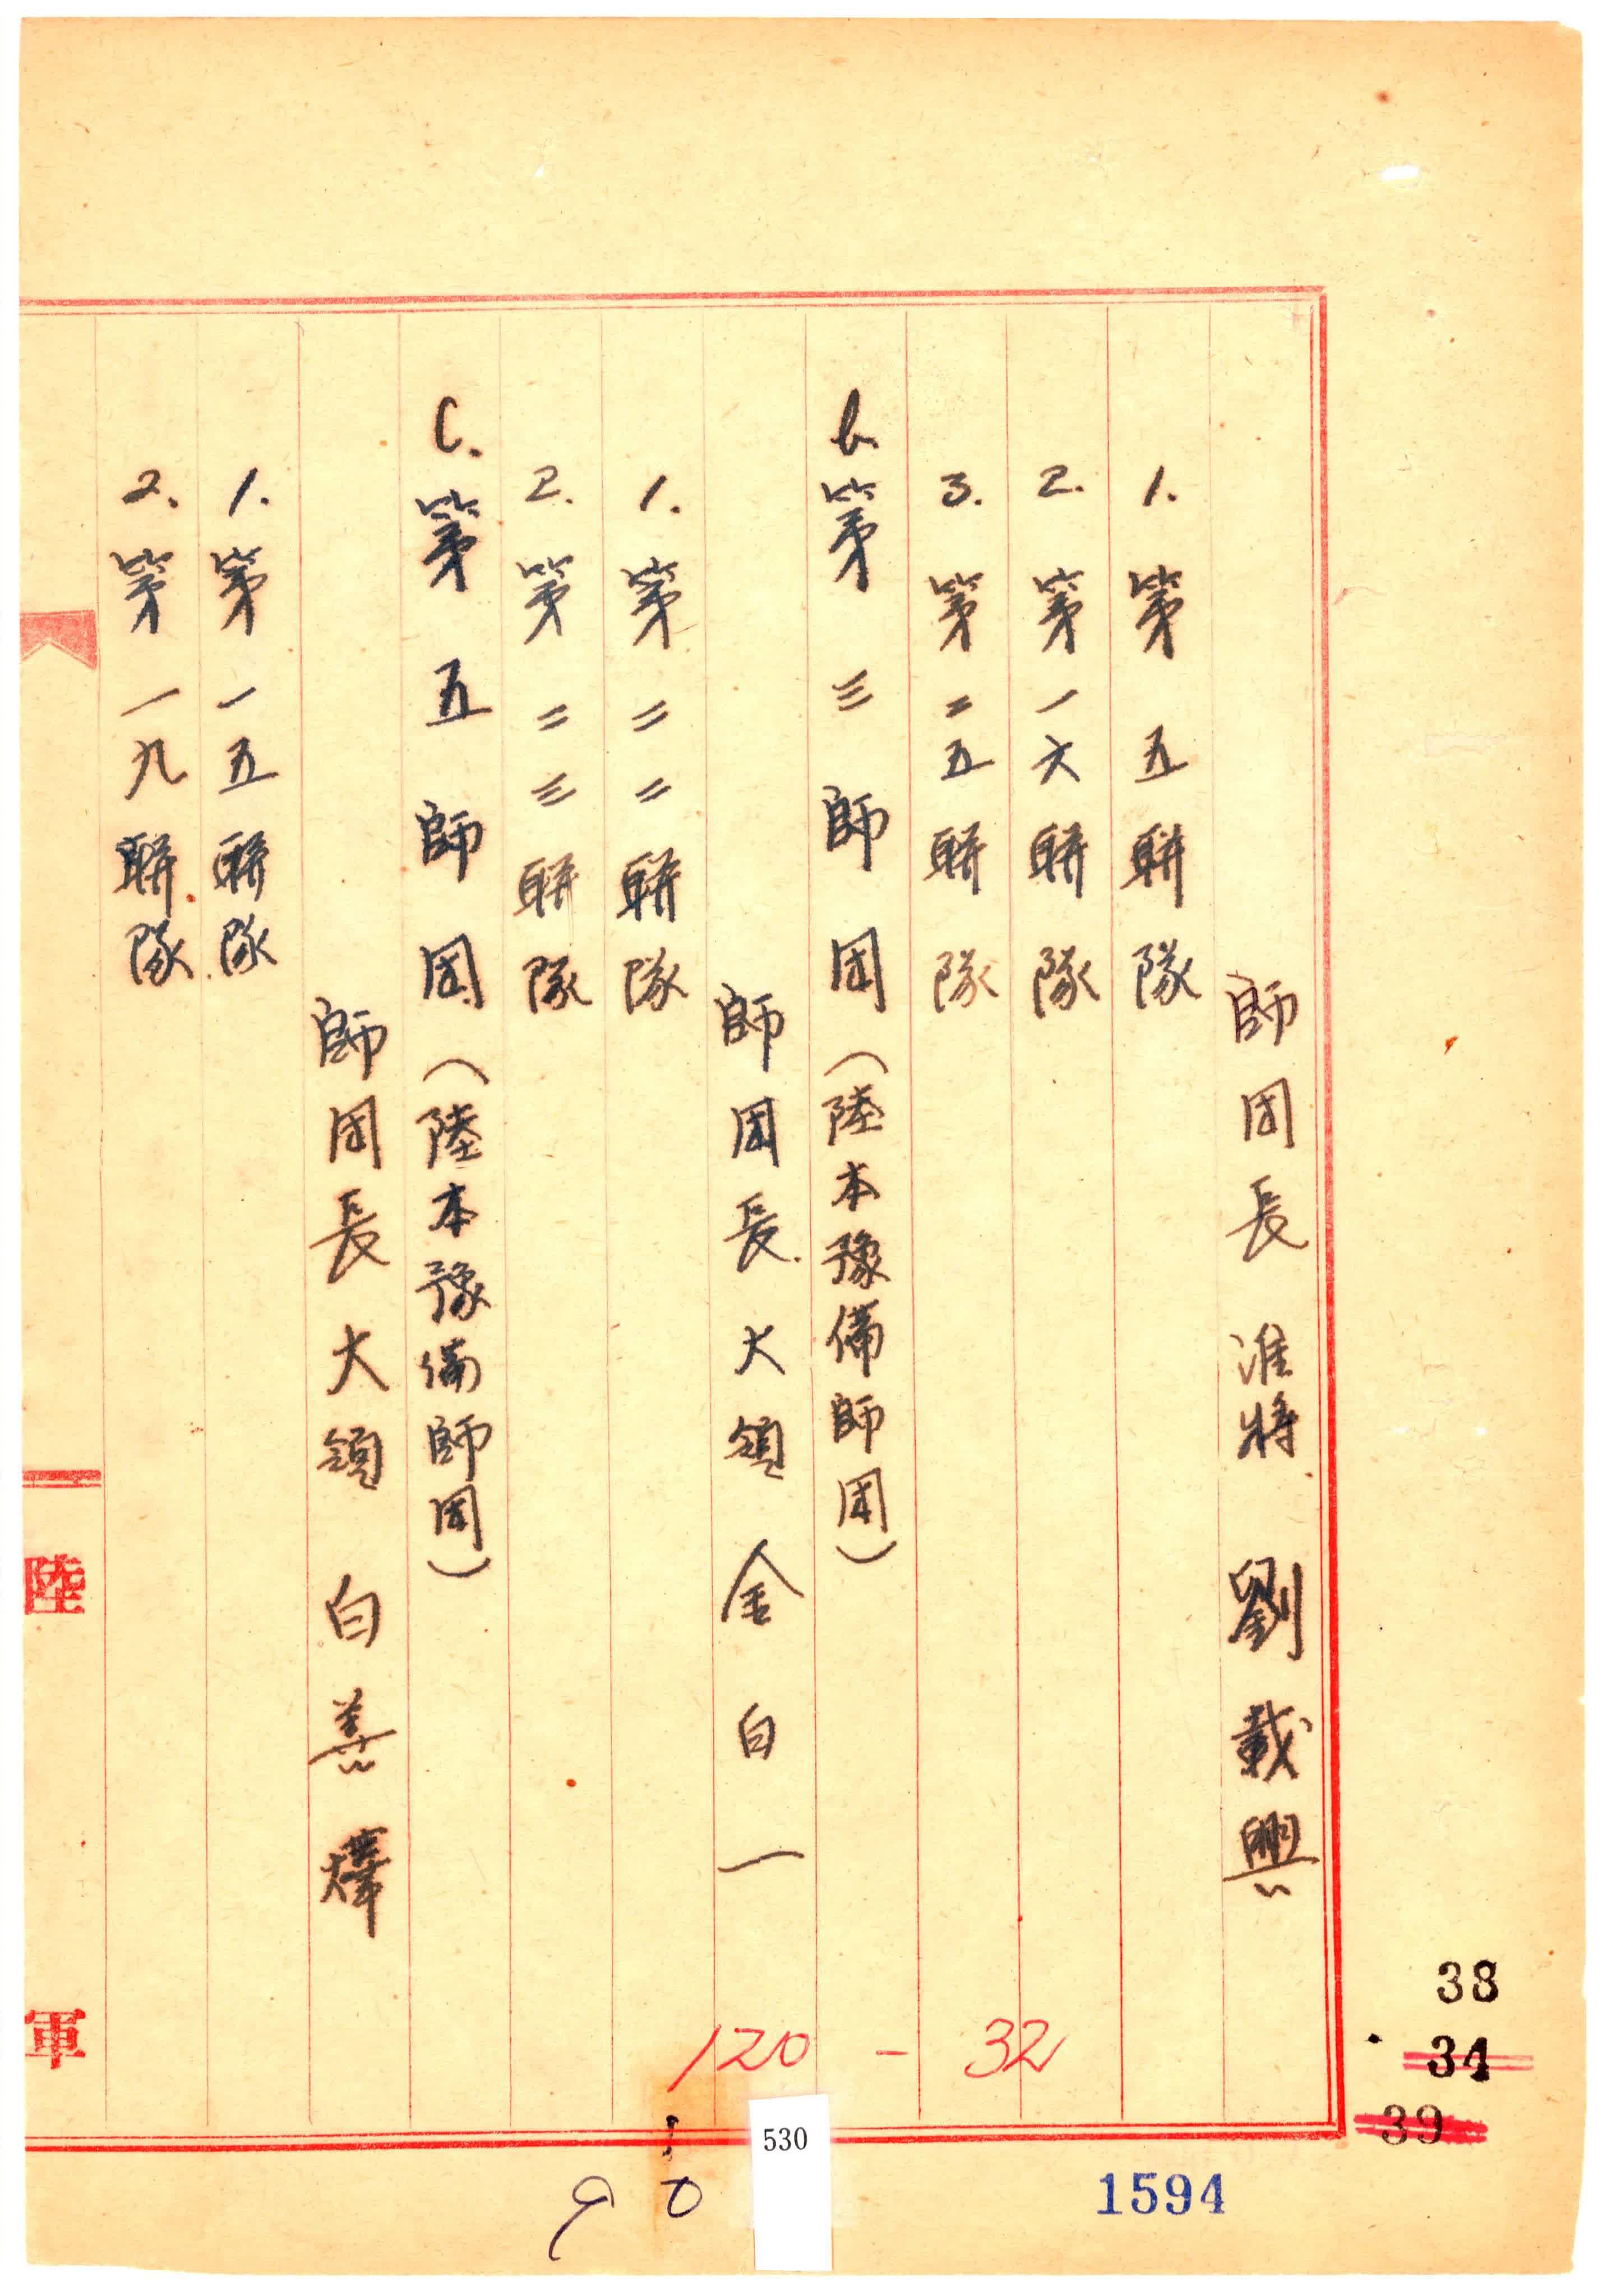 師団長 准将 劉載興
1. 第五联隊
2. 第一六联隊
3. 第二五联隊
b. 第三師団(陸本豫備師団)
師団長大領 金白一
1. 第二二联隊
2. 第二三联隊
C. 第五師団(陸本豫備師団)
師団長大領 白善燁
1. 第一五联隊
2. 第一九联隊
陸軍
120 - 32
38
34
39
530
1594